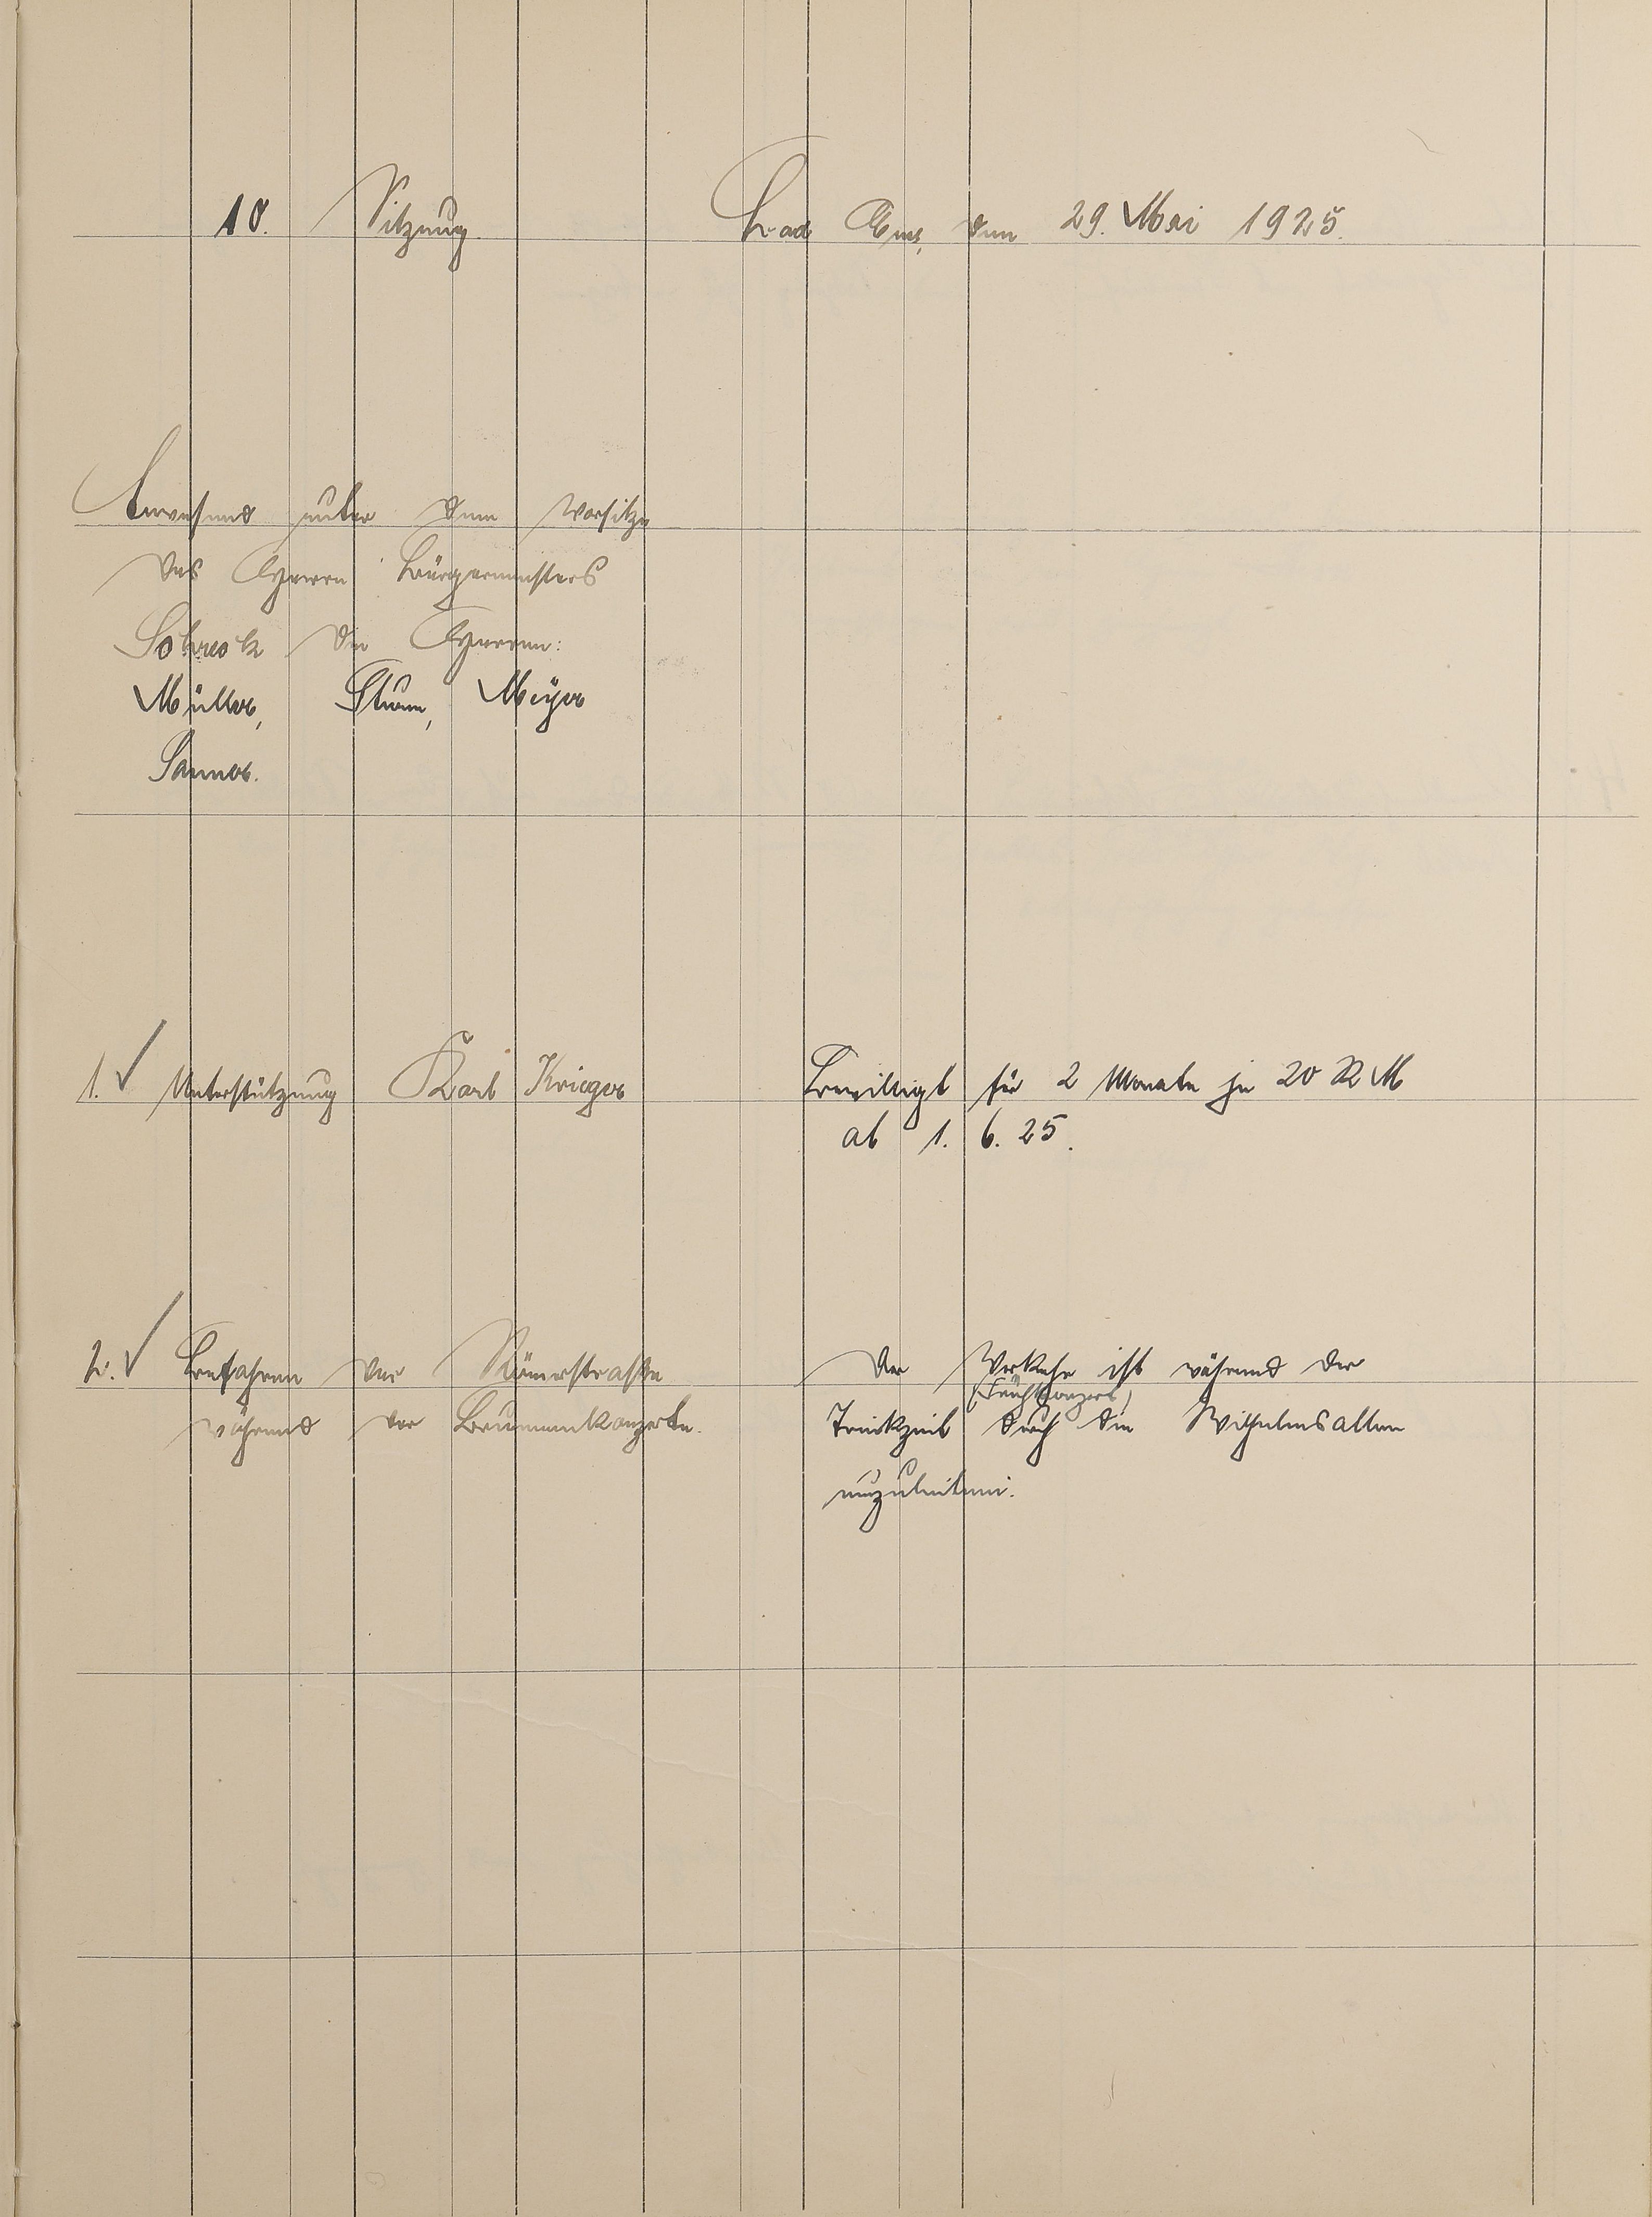 10. Sitzung Bad Ems, den 29. Mai 1925.
Anwesend unter dem Vorsitze
des Herrn Bürgermeisters
Schreck die Herren:
Müller, Sturm, Meyer
Sanner.
1. Unterstützung Karl Krieger
Bewilligt für 2 Monate je 20 RM
ab 1. 6. 25.
2. Befahren der Römerstraße
während der Brunnenkonzerte.
Der Verkehr ist während der
(Frühkonzert)
Trinkzeit durch die Wilhelmsallee
umzuleiten.